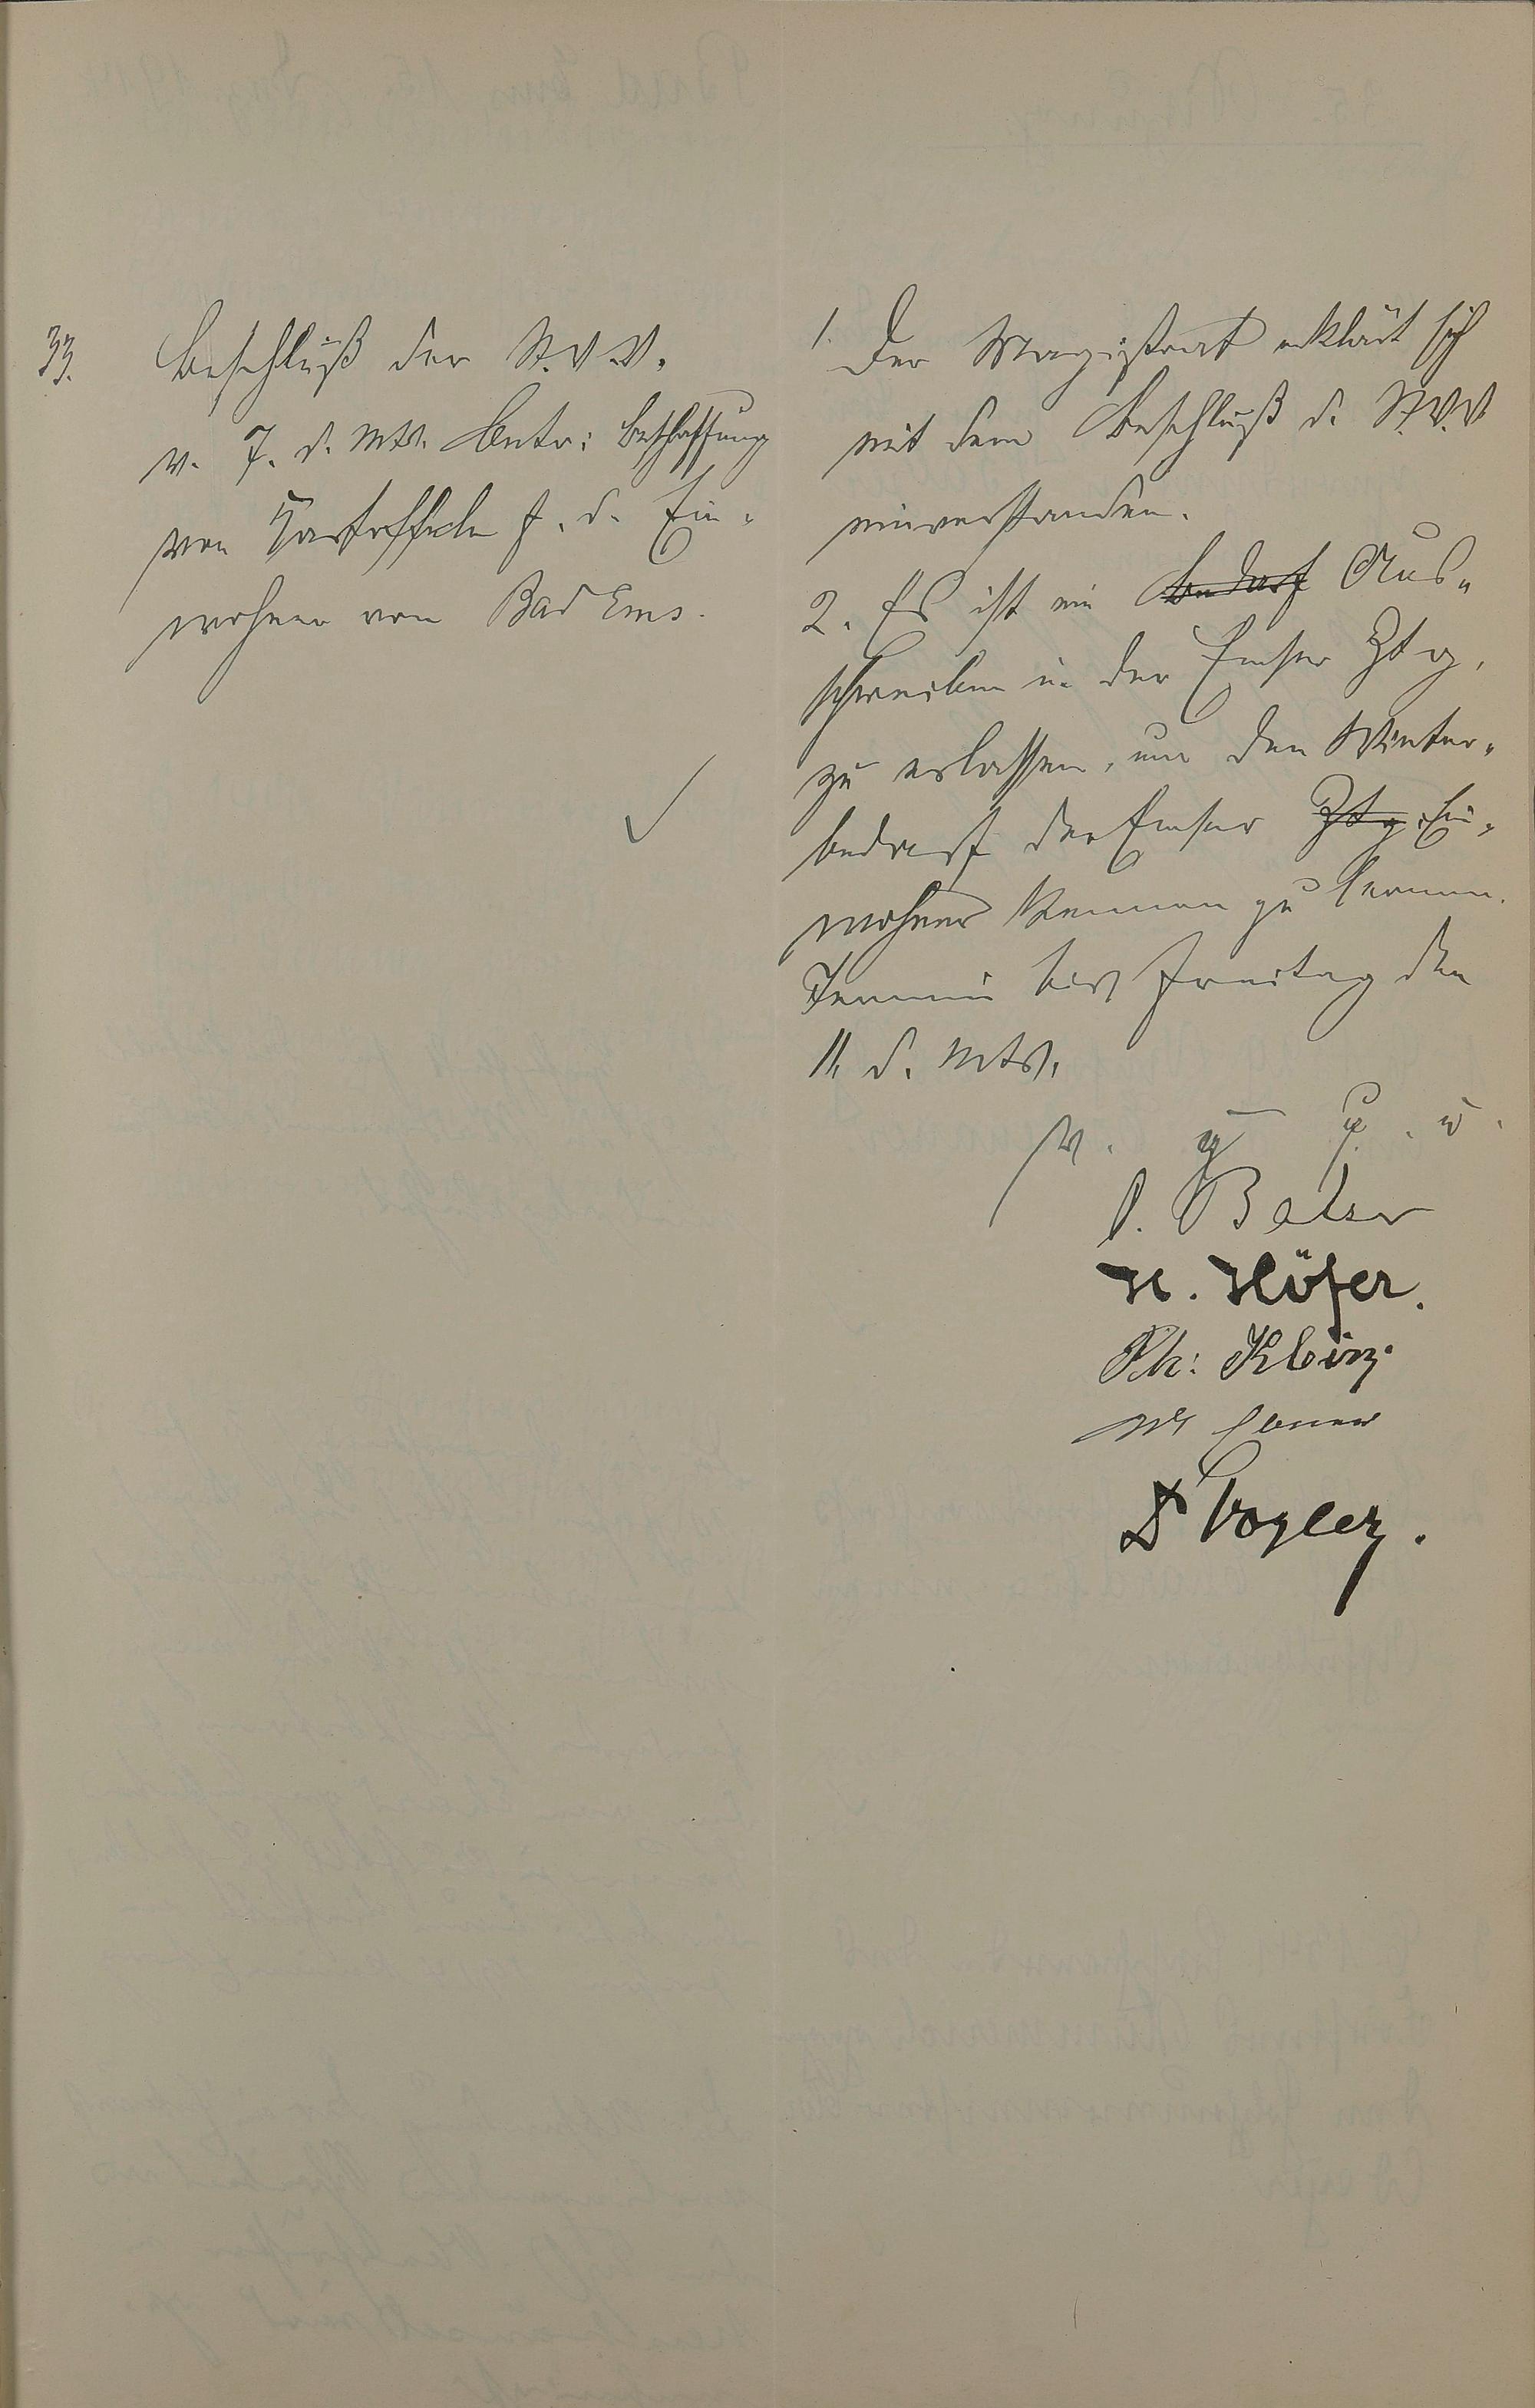 33.
Beschluß der St.V.V.
v. 7. d. Mts. Betr: Beschaffung
von Kartoffeln f. d. Ein-
wohner von Bad Ems.
1. Der Magistrat erklärt sich
mit dem Beschluß d. St.V.V
einverstanden.
2. Es ist ein Bedarf Aus-
schreiben in der Emser Ztg.
zu erlassen, um den Winter-
bedarf der Emser Ztg. Ein-
wohner kennen zu lernen.
Termin bis Freitag den
11. d. Mts.
v. g. u.
Balzer
H. Höfer.
Ph:
Dr Vogler.